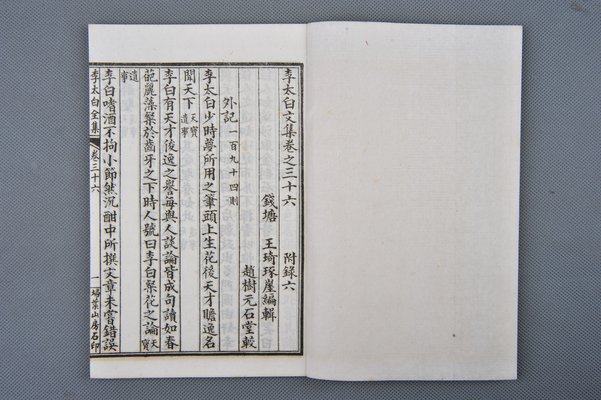 李太白文集卷之三十六　附錄六
錢塘　王琦琢崖編輯
趙樹元石堂較
外記一百九十四則
李太白少時夢所用之筆頭上生花後天才贍逸名
聞天下天寶遺事
李白有天才俊逸之譽每與人談論皆成句讀如春
葩麗藻粲於齒牙之下時人號曰李白粲花之論天寶
遺事
李白嗜酒不拘小節然沉酣中所撰文章未嘗錯誤
李太白全集　卷三十六　一　掃葉山房石印